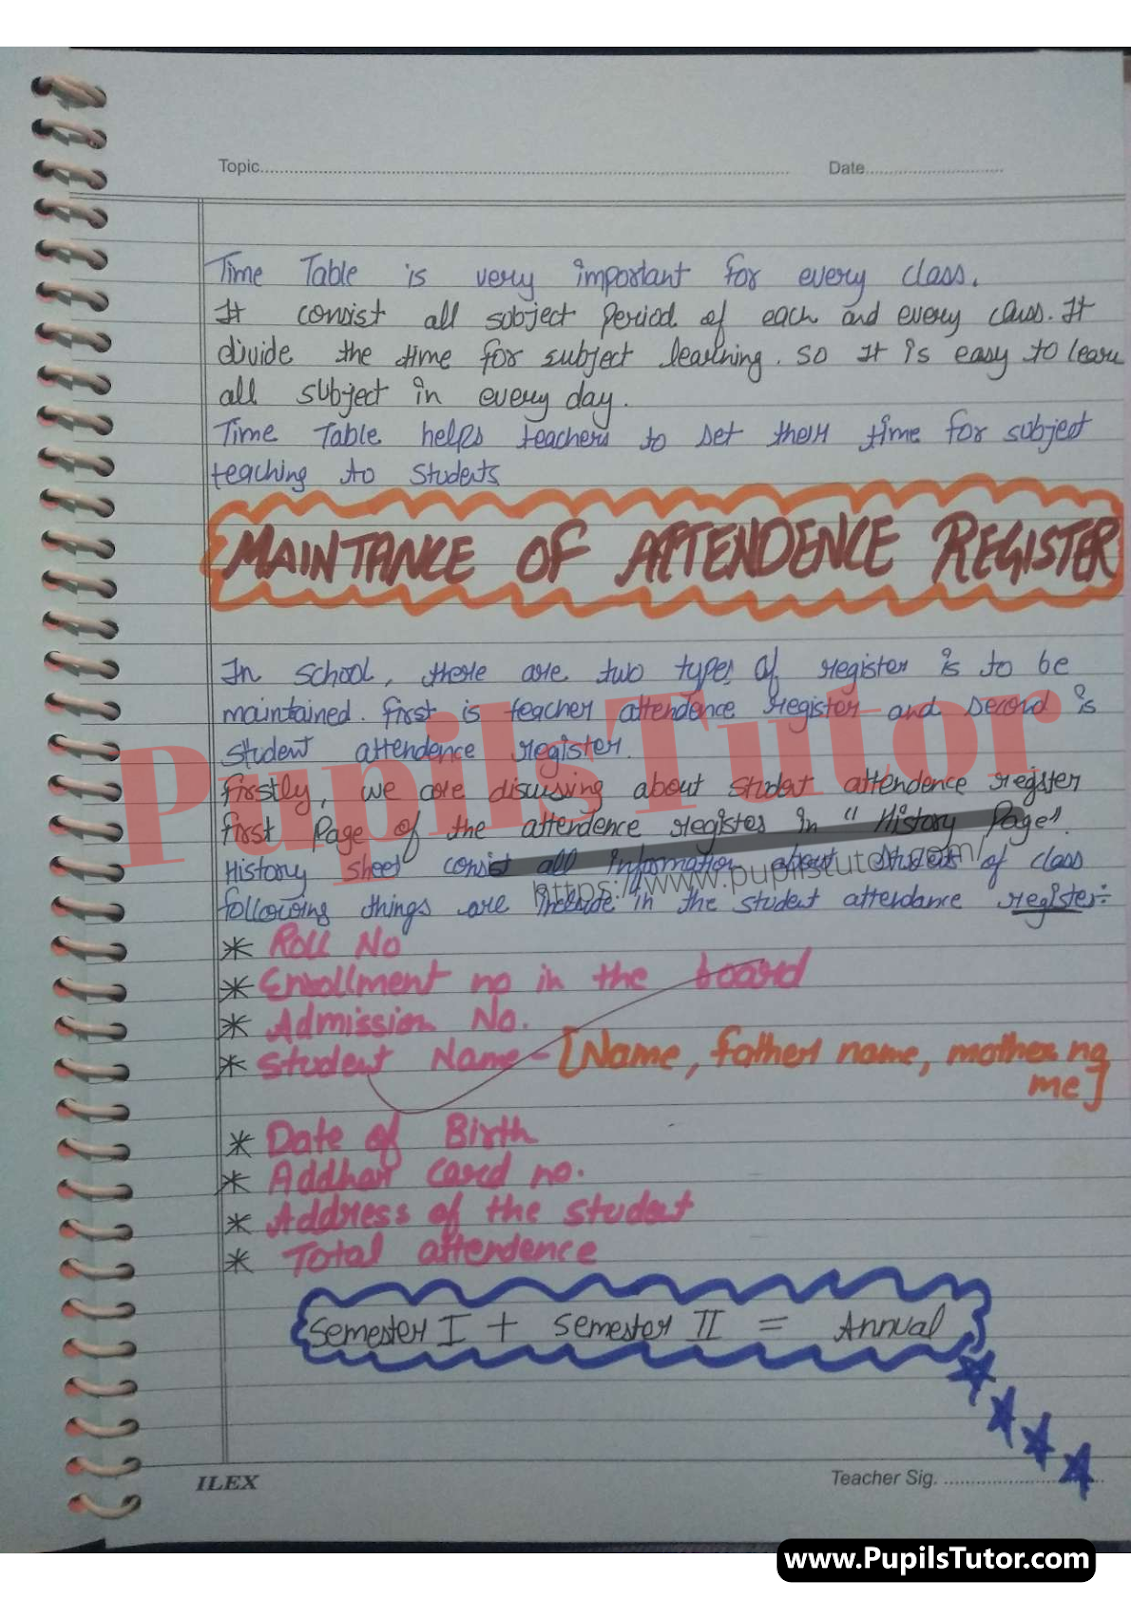 Topic Date
Time Table is very important for every class.
It consist all subject period of each and every class. It
divide the time for subject learning. so It is easy to learn
all subject in every day.
Time Table helps teachers to set their time for subject
teaching to students
MAINTANCE OF ATTENDENCE REGISTER
In school, there are two types of register is to be
maintained. first is teacher attendence register and second is
student attendence register.
PupilsTutor
firstly, we are discussing about student attendence register
first Page of the attendence register in "History Page".
History sheet consist all information about students of class
https://www.pupilstutor.com/
following things are include in the student attendance register:-
* Roll No
* Enrollment no in the board
* Admission No.
* Student Name - [Name, father name, mother na
me]
* Date of Birth
* Addhar card no.
* Address of the student
* Total attendence
Semester I + Semester II = Annual
ILEX
Teacher Sig.
www.PupilsTutor.com